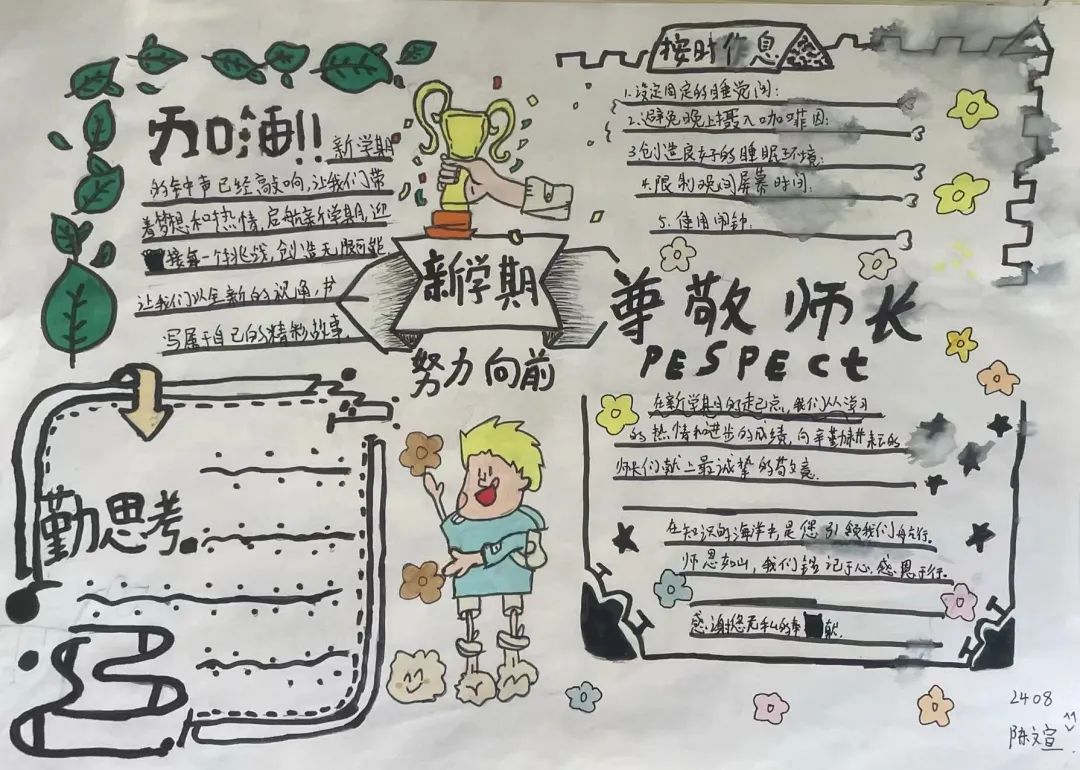 加油!!
新学期
的钟声已经敲响,让我们带
着梦想和热情,启航新学期,迎
接每一个挑战,创造无限可能.
让我们以全新的视角,书
写属于自己的精彩故事.
新学期
努力向前
按时作息
1.设定固定的睡觉间:
2.避免晚上摄入咖啡因:
3.创造良好的睡眠环境:
4.限制晚间屏幕时间:
5.使用闹钟.
尊敬师长
PESPECt
在新学期的起点,我们以学习
的热情和进步的成绩,向辛勤耕耘的
师长们献上最诚挚的敬意.
在知识的海洋里,是您引领我们航行.
师恩如山,我们铭记于心,感恩于行.
感谢您无私的奉献.
勤思考.
2408
陈文宣